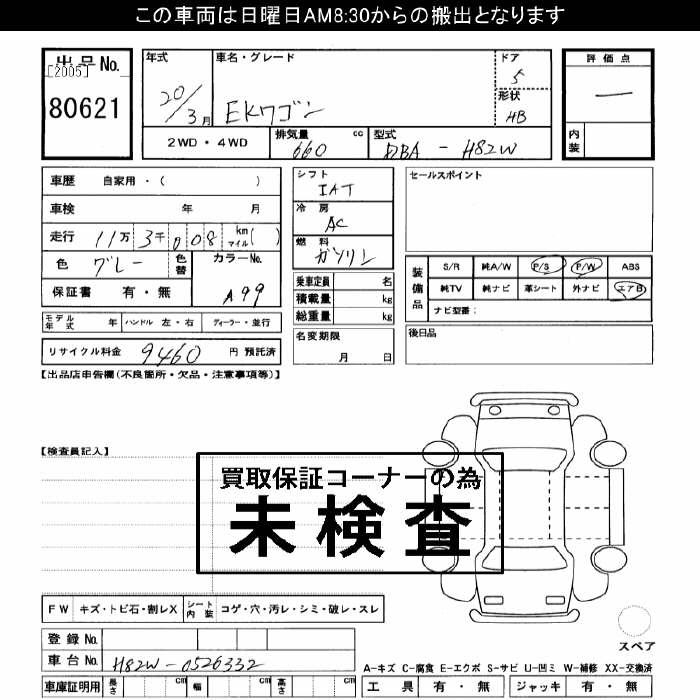 この車両は日曜日AM8:30からの搬出となります
出品No.
[2005]
80621
年式
20/3月
車名・グレード
EKワゴン
ドア
5
形状
HB
評価点
―
内装
2WD・4WD
排気量
660
cc
型式
DBA - H82W
車歴 自家用・( )
車検 年 月
走行 11万3千008 km マイル( )
色 グレー
色替
カラーNo.
A99
保証書 有・無
モデル年式 年 ハンドル 左・右 ディーラー・並行
リサイクル料金 9460 円 預託済
シフト
IAT
冷房
AC
燃料
ガソリン
乗車定員 名
積載量 kg
総重量 kg
名変期限
月 日
セールスポイント
装備品
S/R 純A/W P/S P/W ABS
純TV 純ナビ 革シート 外ナビ エアB
ナビ型番:
後日品
【出品店申告欄(不良箇所・欠品・注意事項等)】
【検査員記入】
買取保証コーナーの為
未検査
FW キズ・トビ石・割レX シート内装 コゲ・穴・汚レ・シミ・破レ・スレ
登録No.
車台No. H82W-0526332
車庫証明用 長さ cm 幅 cm 高さ cm
スペア
A-キズ C-腐食 E-エクボ S-サビ U-凹ミ W-補修 XX-交換済
工具 有・無 ジャッキ 有・無